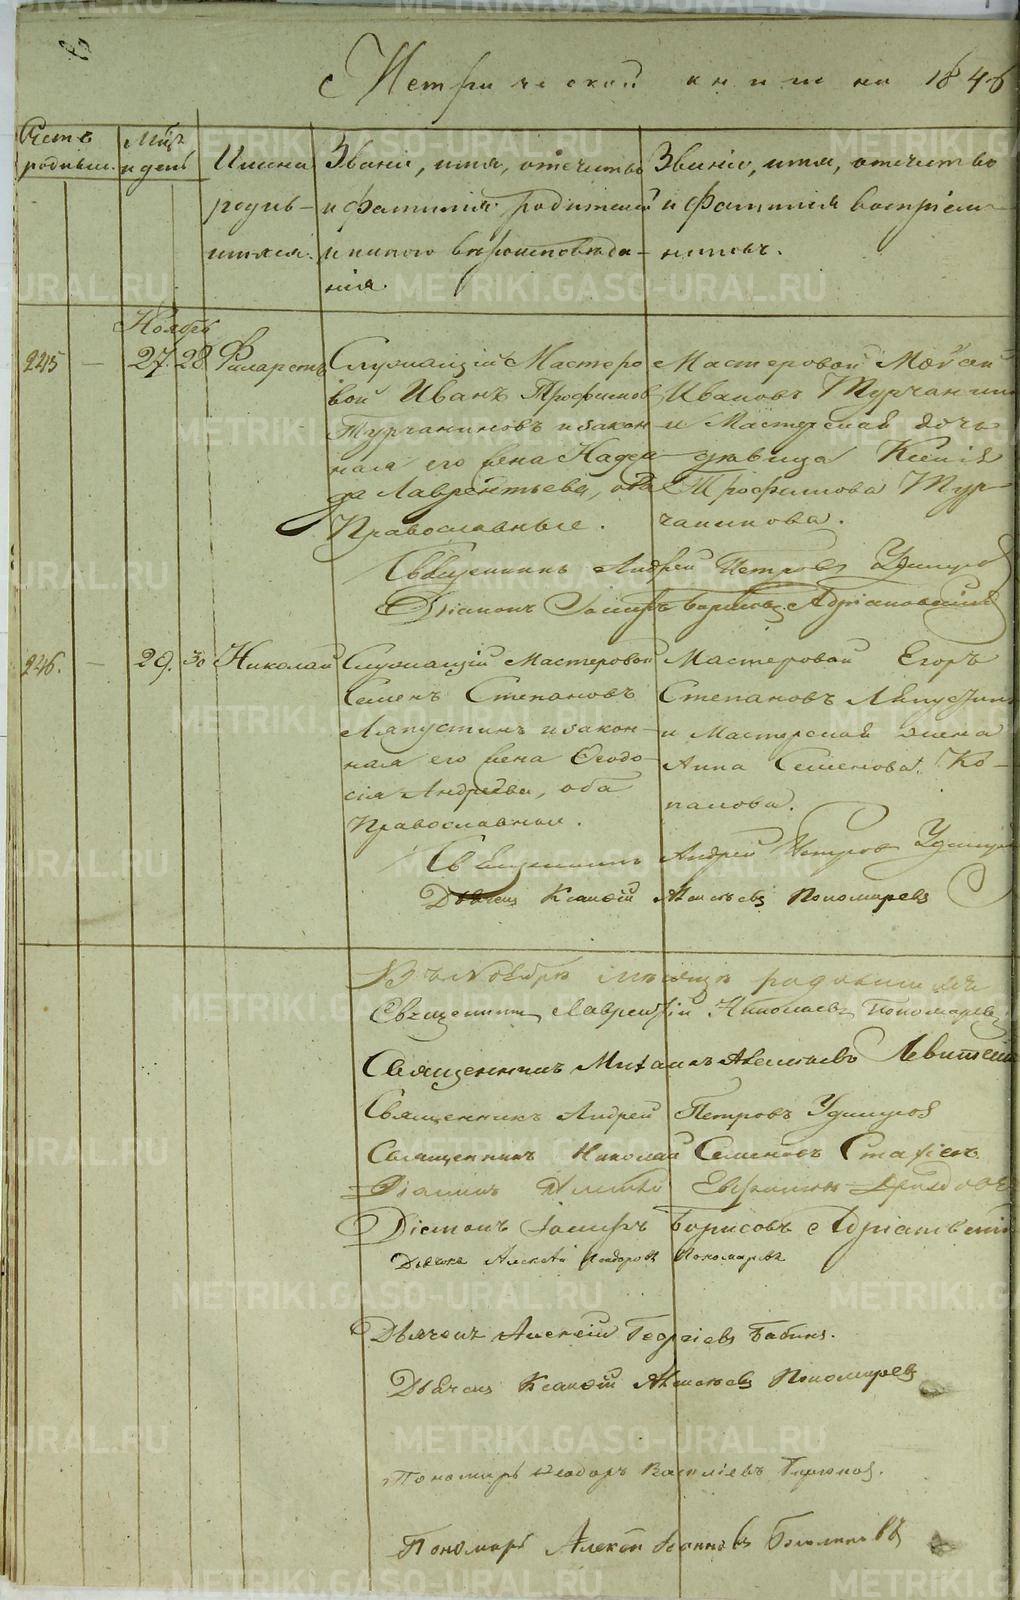 Метрической книги на 1846
Счетъ родивш.
Мцъ и день
Имена родив-
шихся.
Званіе, имя, отечество
и фамилія родителей
и какого вѣроисповѣда-
нія.
Званіе, имя, отечество
и фамилія воспріем-
никовъ.
Ноябрь
245 — 27. 28 Филаретъ
Служащій Мастеро
вой Иванъ Трофимов
Турчаниновъ и закон-
ная его жена Надеж-
да Лаврентьева, оба
Православные.
Мастеровой Мойсей
Ивановъ Турчанин
и Мастерская дочь
дѣвица Ксенія
Трофимова Тур-
чанинова.
Священникъ Андрей Петровъ Удинцов
Діаконъ Іосифъ Борисовъ Адріановскій
246. — 29. 30 Николай
Служащій Мастеровой
Семенъ Степановъ
Ляпустинъ и закон-
ная его жена Ѳеодо-
сія Андреева, оба
Православные.
Мастеровой Егоръ
Степановъ Ляпустин
и Мастерская жена
Анна Семенова Ко-
палова.
Священникъ Андрей Петров Удинцов
Дьячекъ Алексѣевъ Пономаревъ
Въ Ноябрѣ мѣсяцѣ родившихъ
Священникъ Лаврентій Николаевъ Пономаревъ
Священникъ Михаилъ Алексѣевъ Левитскій
Священникъ Андрей Петровъ Удинцов
Священникъ Николай Семеновъ Стахіевъ
Діаконъ
Діаконъ Іосифъ Борисовъ Адріановскій
Дьячекъ Алексѣй Ѳеодоровъ Пономаревъ
Дьячекъ Алексѣй Георгіевъ Бабинъ.
Дьячекъ Алексѣевъ Пономаревъ
Пономарь Ѳеодоръ Василіевъ
Пономарь Алексѣй
METRIKI.GASO-URAL.RU